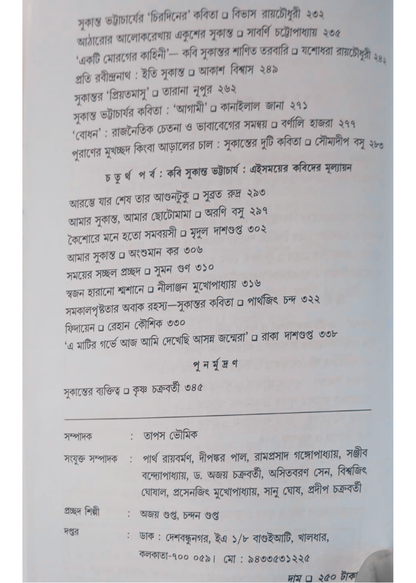 সুকান্ত ভট্টাচার্যের ‘চিরদিনের’ কবিতা □ বিভাস রায়চৌধুরী ২৩২
আঠারোর আলোকরেখায় একুশের সুকান্ত □ সাবর্ণি চট্টোপাধ্যায় ২৩৫
‘একটি মোরগের কাহিনী’— কবি সুকান্তর শাণিত তরবারি □ যশোধরা রায়চৌধুরী ২৪২
প্রতি রবীন্দ্রনাথ : ইতি সুকান্ত □ আকাশ বিশ্বাস ২৪৯
সুকান্তর ‘প্রিয়তমাসু’ □ তারানা নূপুর ২৬২
সুকান্ত ভট্টাচার্যর কবিতা : ‘আগামী’ □ কানাইলাল জানা ২৭১
‘বোধন’ : রাজনৈতিক চেতনা ও ভাবাবেগের সমন্বয় □ বর্ণালি হাজরা ২৭৭
পুরাণের মুখচ্ছদ কিংবা আড়ালের চাল : সুকান্তের দুটি কবিতা □ সৌম্যদীপ বসু ২৮৩
চ তু র্থ প র্ব : কবি সুকান্ত ভট্টাচার্য : এইসময়ের কবিদের মূল্যায়ন
আরম্ভে যার শেষ তার আগুনটুকু □ সুব্রত রুদ্র ২৯৩
আমার সুকান্ত, আমার ছোটোমামা □ অরণি বসু ২৯৭
কৈশোরে মনে হতো সমবয়সী □ মৃদুল দাশগুপ্ত ৩০২
আমার সুকান্ত □ অংশুমান কর ৩০৬
সময়ের সচ্ছল প্রচ্ছদ □ সুমন গুণ ৩১০
স্বজন হারানো শ্মশানে □ নীলাঞ্জন মুখোপাধ্যায় ৩১৬
সমকালপৃষ্টতার অবাক রহস্য—সুকান্তর কবিতা □ পার্থজিৎ চন্দ ৩২২
ফিদায়েন □ রেহান কৌশিক ৩৩০
‘এ মাটির গর্ভে আজ আমি দেখেছি আসন্ন জন্মেরা’ □ রাকা দাশগুপ্ত ৩৩৮
পু ন র্মু দ্র ণ
সুকান্তের ব্যক্তিত্ব □ কৃষ্ণ চক্রবর্তী ৩৪৫
সম্পাদক : তাপস ভৌমিক
সংযুক্ত সম্পাদক : পার্থ রায়বর্মণ, দীপঙ্কর পাল, রামপ্রসাদ গঙ্গোপাধ্যায়, সঞ্জীব
বন্দ্যোপাধ্যায়, ড. অজয় চক্রবর্তী, অসিতবরণ সেন, বিশ্বজিৎ
ঘোষাল, প্রসেনজিৎ মুখোপাধ্যায়, সানু ঘোষ, প্রদীপ চক্রবর্তী
প্রচ্ছদ শিল্পী : অজয় গুপ্ত, চন্দন গুপ্ত
দপ্তর : ডাক : দেশবন্ধুনগর, ইএ ১/৮ বাগুইআটি, খালধার,
কলকাতা-৭০০ ০৫৯। মো : ৯৪৩৩৫৩১২২৫
দাম □ ২৫০ টাকা